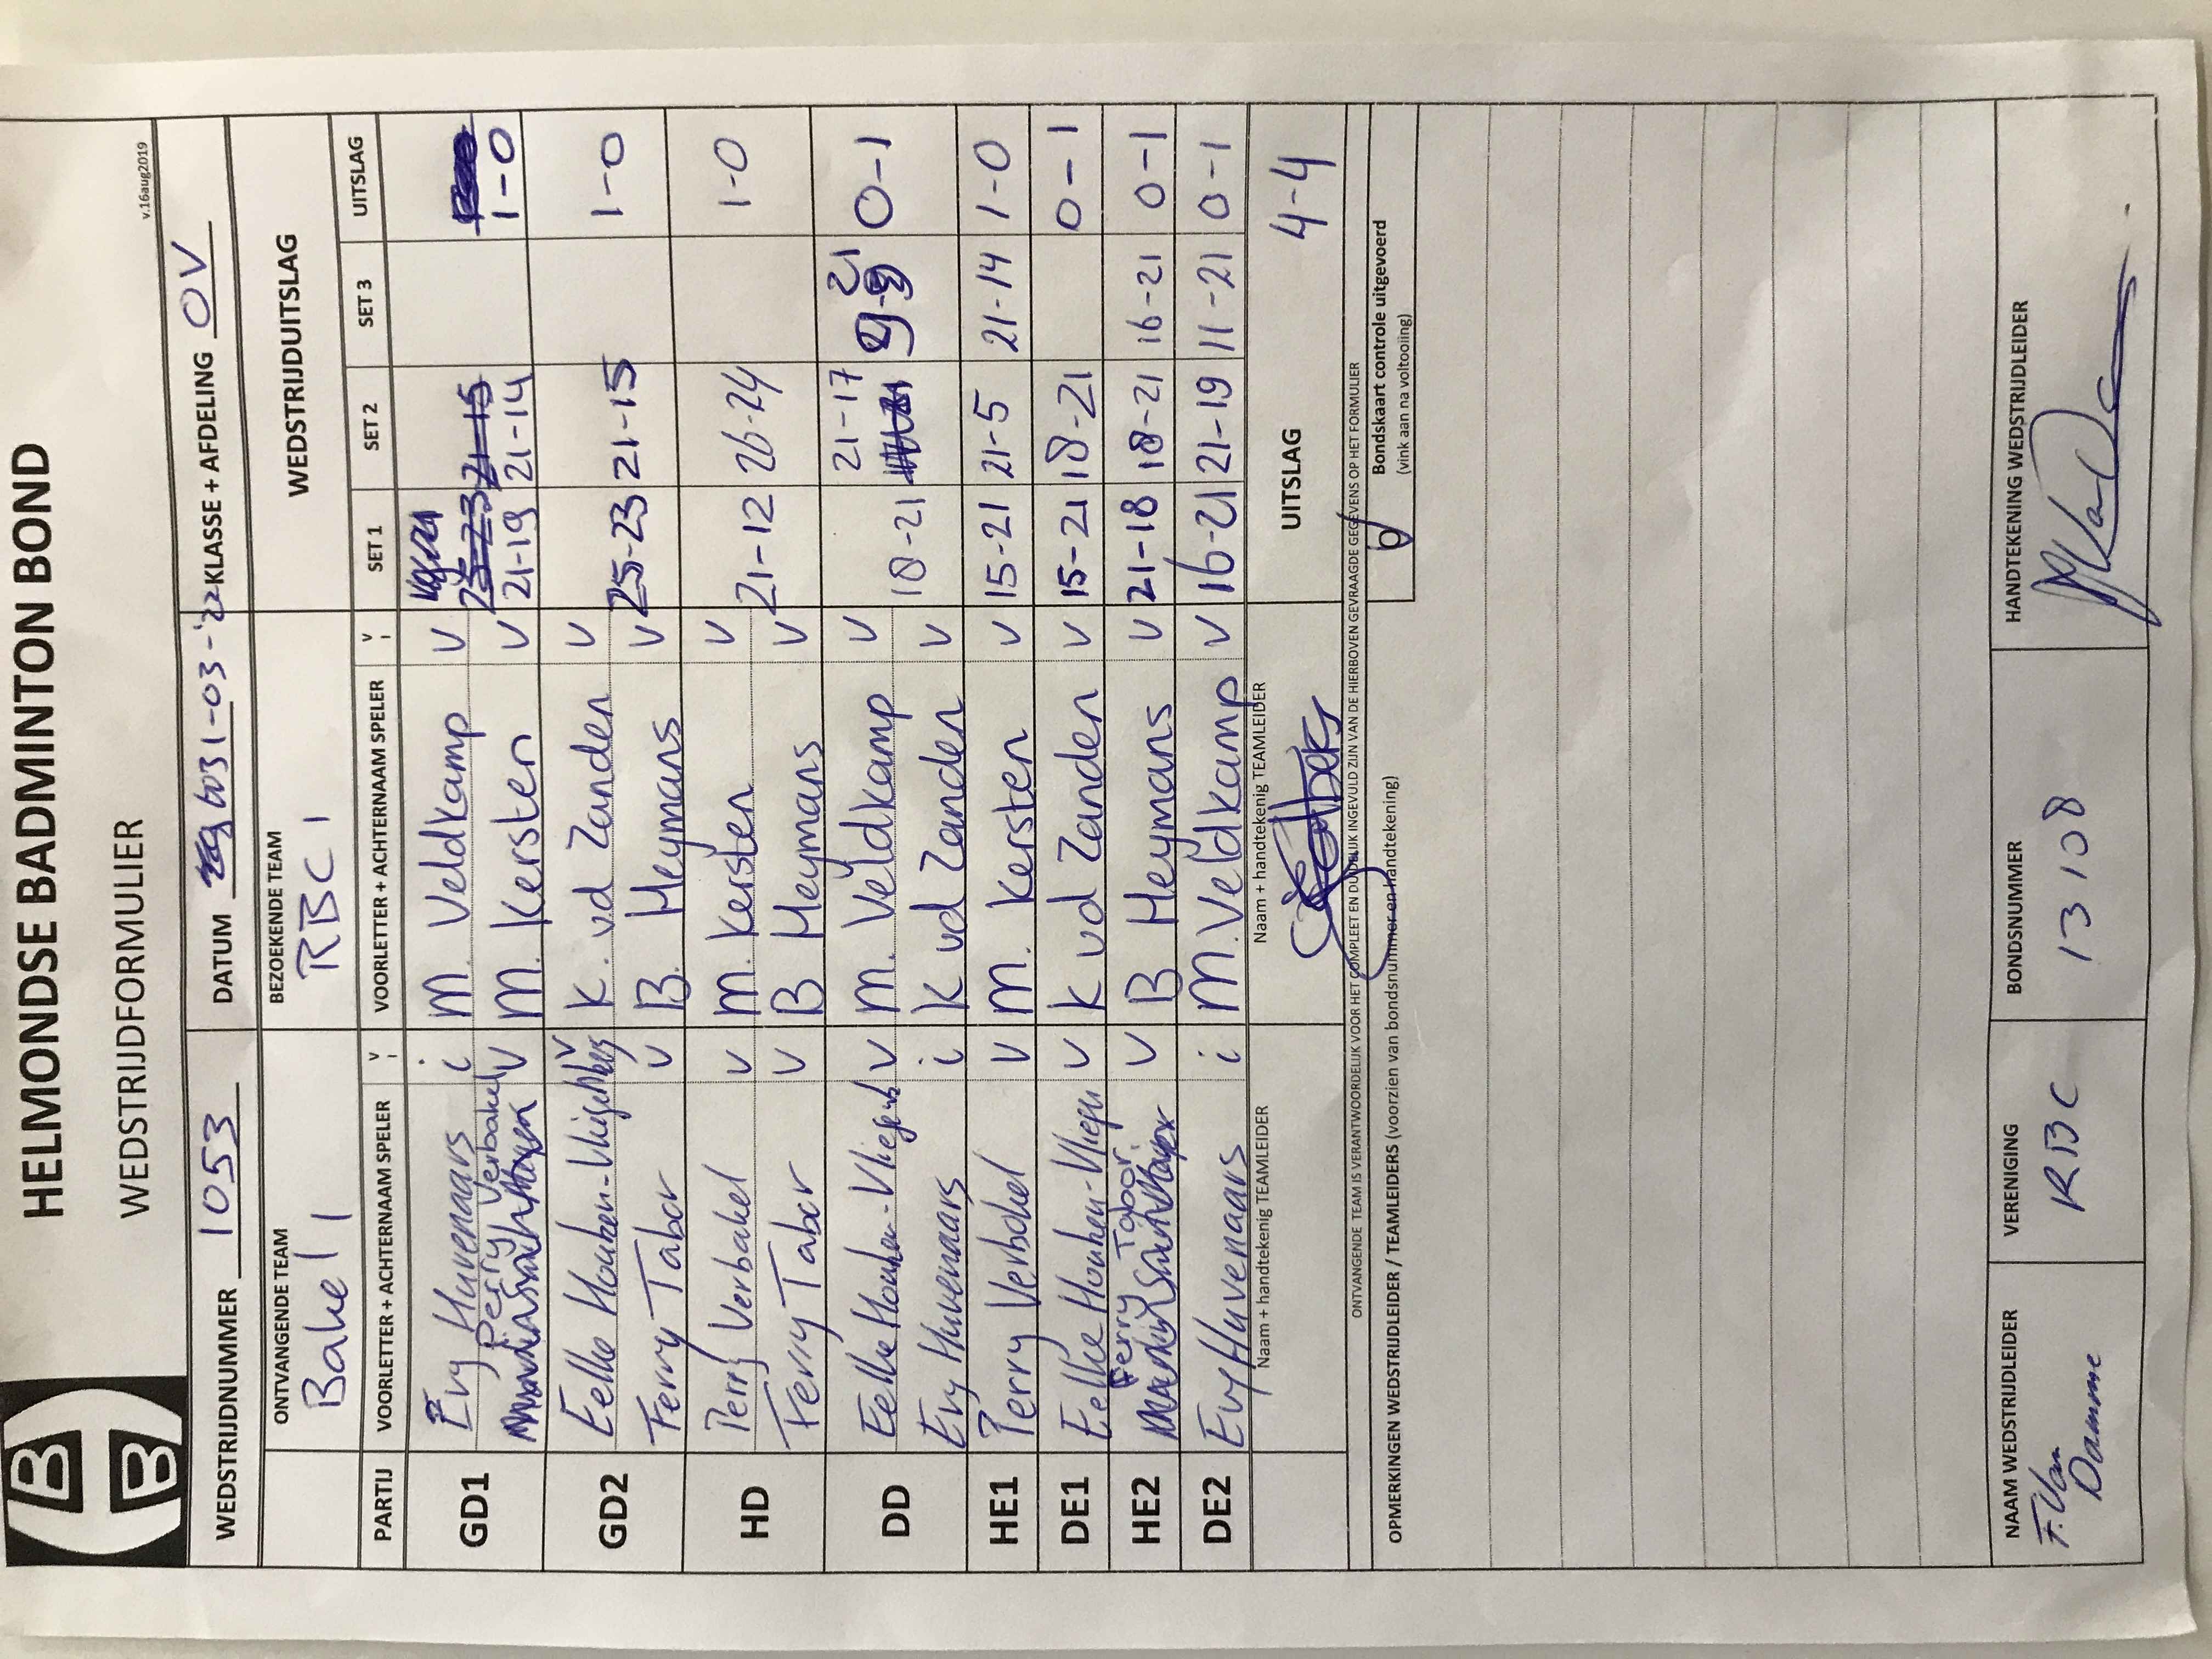 HELMONDSE BADMINTON BOND
WEDSTRIJDFORMULIER
v.16aug2019
WEDSTRIJDNUMMER 1053 DATUM 31-03-'22 KLASSE + AFDELING OV
ONTVANGENDE TEAM BEZOEKENDE TEAM WEDSTRIJDUITSLAG
Bakel 1 RBC 1
PARTIJ VOORLETTER + ACHTERNAAM SPELER V I VOORLETTER + ACHTERNAAM SPELER V I SET 1 SET 2 SET 3 UITSLAG
GD1 Evy Huvenaars i M. Veldkamp V 25-23 21-15
Perry Verbakel V M. Kersten V 21-19 21-14 1-0
GD2 Eelke Houben-Vliegenberg V K. vd Zanden V
Ferry Tabor V B. Heymans V 25-23 21-15 1-0
HD Perry Verbakel V M. Kersten V
Ferry Tabor V B Heymans V 21-12 26-24 1-0
DD Eelke Houben-Vliegenb V M. Veldkamp V 21-17 21
Evy Huvenaars i K vd Zanden V 18-21 0-1
HE1 Perry Verbakel V M. Kersten V 15-21 21-5 21-14 1-0
DE1 Eelke Houben-Vliegen V K vd Zanden V 15-21 18-21 0-1
HE2 Ferry Tabor V B Heymans V 21-18 18-21 16-21 0-1
DE2 Evy Huvenaars i M. Veldkamp V 16-21 21-19 11-21 0-1
Naam + handtekenig TEAMLEIDER Naam + handtekenig TEAMLEIDER UITSLAG 4-4
ONTVANGENDE TEAM IS VERANTWOORDELIJK VOOR HET COMPLEET EN DUIDELIJK INGEVULD ZIJN VAN DE HIERBOVEN GEVRAAGDE GEGEVENS OP HET FORMULIER
OPMERKINGEN WEDSTRIJDLEIDER / TEAMLEIDERS (voorzien van bondsnummer en handtekening)
Bondskaart controle uitgevoerd
(vink aan na voltooiing)
NAAM WEDSTRIJDLEIDER VERENIGING BONDSNUMMER HANDTEKENING WEDSTRIJDLEIDER
F. Van
Damme RBC 13108